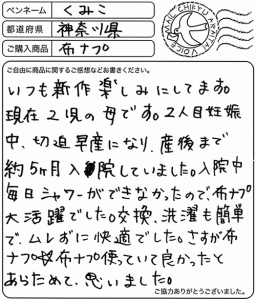 ペンネーム くみこ
都道府県 神奈川県
ご購入商品 布ナプ
MAIL CHIEKU ARAITAI VOICE
ご自由に商品に関するご感想などお書きください。
いつも新作楽しみにしてます。
現在2児の母です。2人目妊娠
中、切迫早産になり、産後まで
約5ヶ月入院していました。入院中
毎日シャワーができなかったので、布ナプ
大活躍でした。交換、洗濯も簡単
で、ムレずに快適でした。さすが布
ナプ!布ナプ使っていて良かったと
あらためて、思いました。
ご協力ありがとうございました。